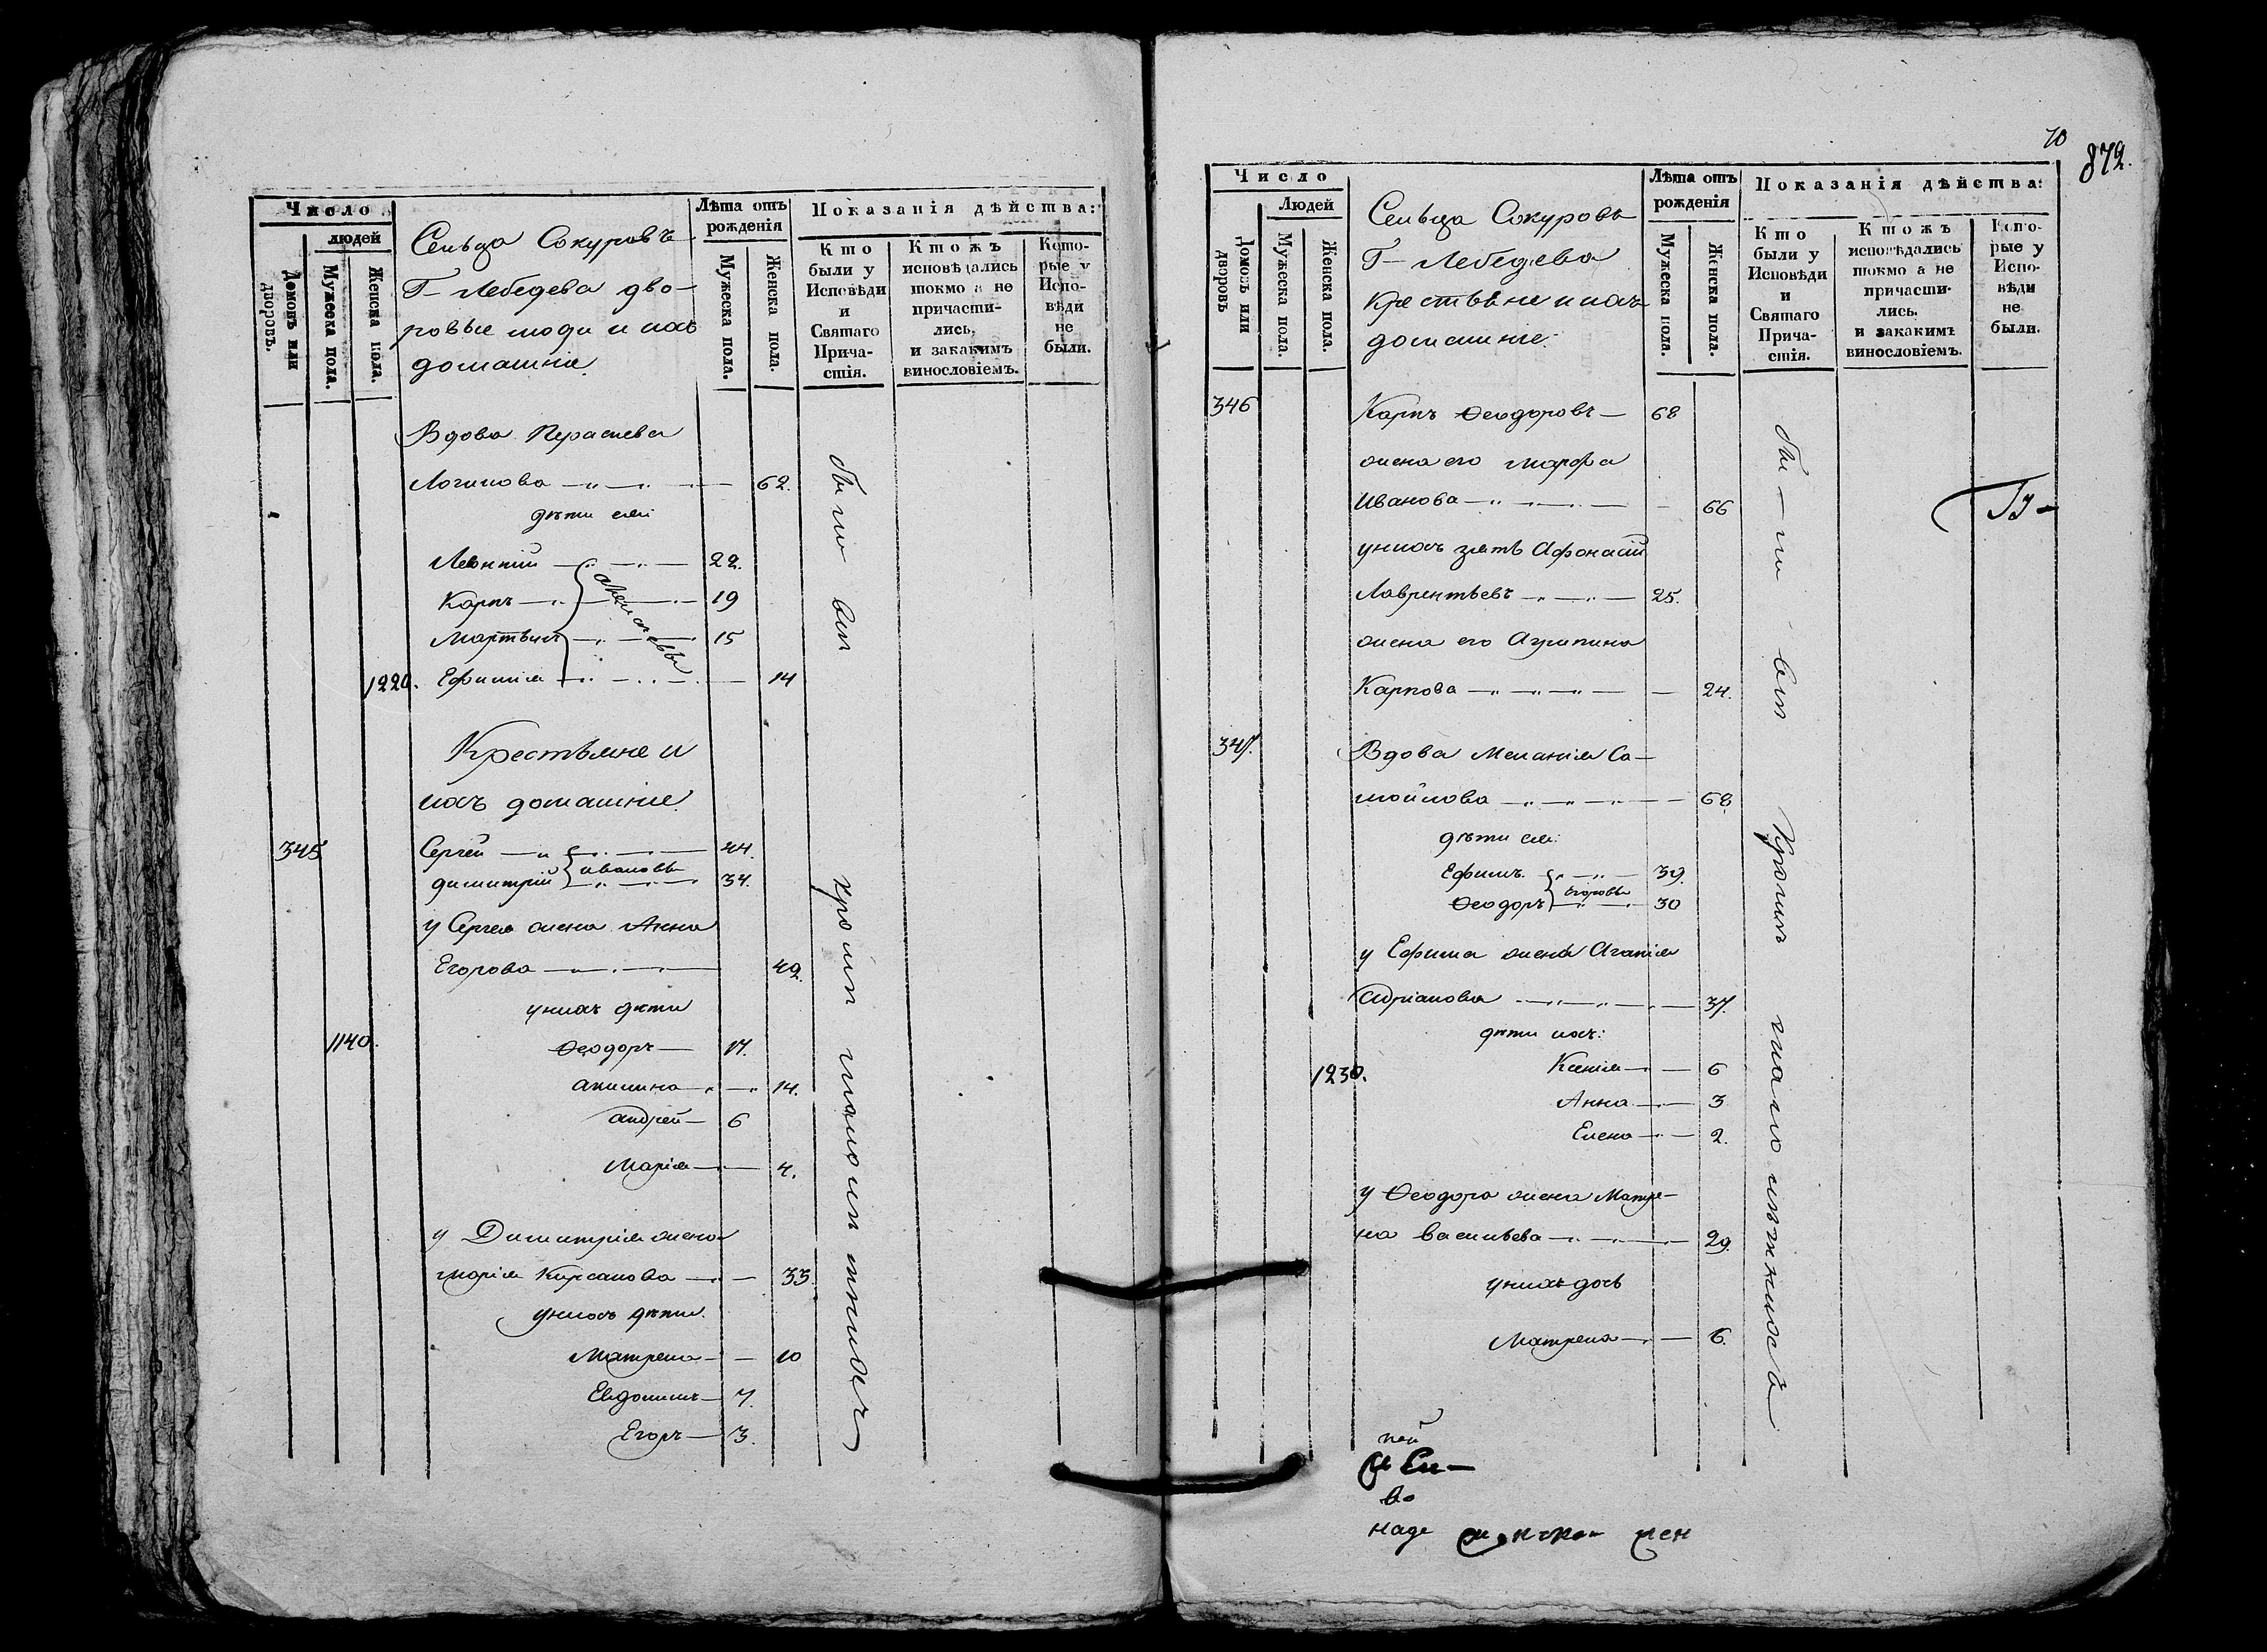 Число
людей
Домовъ или дворовъ.
Мужеска пола.
Женска пола.
Сельца Сокуровъ
Г– Лебедева дво–
ровые люди и ихъ
домашніе
Лѣта отъ рожденія
Мужеска пола.
Женска пола.
Показанія дѣйства:
Кто были у Исповѣди и Святаго Причастія.
Ктожъ исповѣдались токмо а не причастились, и закакимъ винословіемъ.
Которые у Исповѣди не были.
Вдова
Логинова 62.
дѣти ея:
Леонтій 22.
Карпъ 19
Мартинъ 15
1220. Ефимія 14
Крестьяне и
ихъ домашніе
345 Сергей 44.
Димитрій Ивановы 34.
у Сергея жена Анна
Егорова 42.
у нихъ дѣти
1140. Ѳеодоръ 17.
Акилина 14.
Андрей 6
Марія 4.
у Димитрія жена
Марія Кирсанова 33.
у нихъ дѣти.
Матрена 10
Евдокимъ 7.
Егоръ 3.
были всѣ
кромѣ малолѣтнихъ
70
872.
Число
Людей
Домовъ или дворовъ
Мужеска пола.
Женска пола.
Сельца Сокуровъ
Г– Лебедева
крестьяне и ихъ
домашніе.
Лѣта отъ рожденія
Мужеска пола.
Женска пола.
Показанія дѣйства:
Кто были у Исповѣди и Святаго Причастія.
Ктожъ исповѣдались токмо а не причастились. и закакимъ винословіемъ.
Которые у Исповѣди не были.
346 Карпъ Ѳеодоровъ 68
жена его Марфа
Иванова 66
у нихъ зять Афонасій
Лаврентьевъ 25.
жена его Агрипина
Карпова 24.
347. Вдова Меланія Са–
мойлова 68
дѣти ея:
Ефимъ 39.
Ѳеодоръ Егоровы 30
у Ефима жена Агапія
Адріанова 37.
дѣти ихъ:
1230. Ксенія 6
Анна 3
Елена 2.
у Ѳеодора жена Матре–
на Васильева 29.
у нихъ дочь
Матрена 6.
были всѣ
кромѣ малолѣтнихъ
во
наде